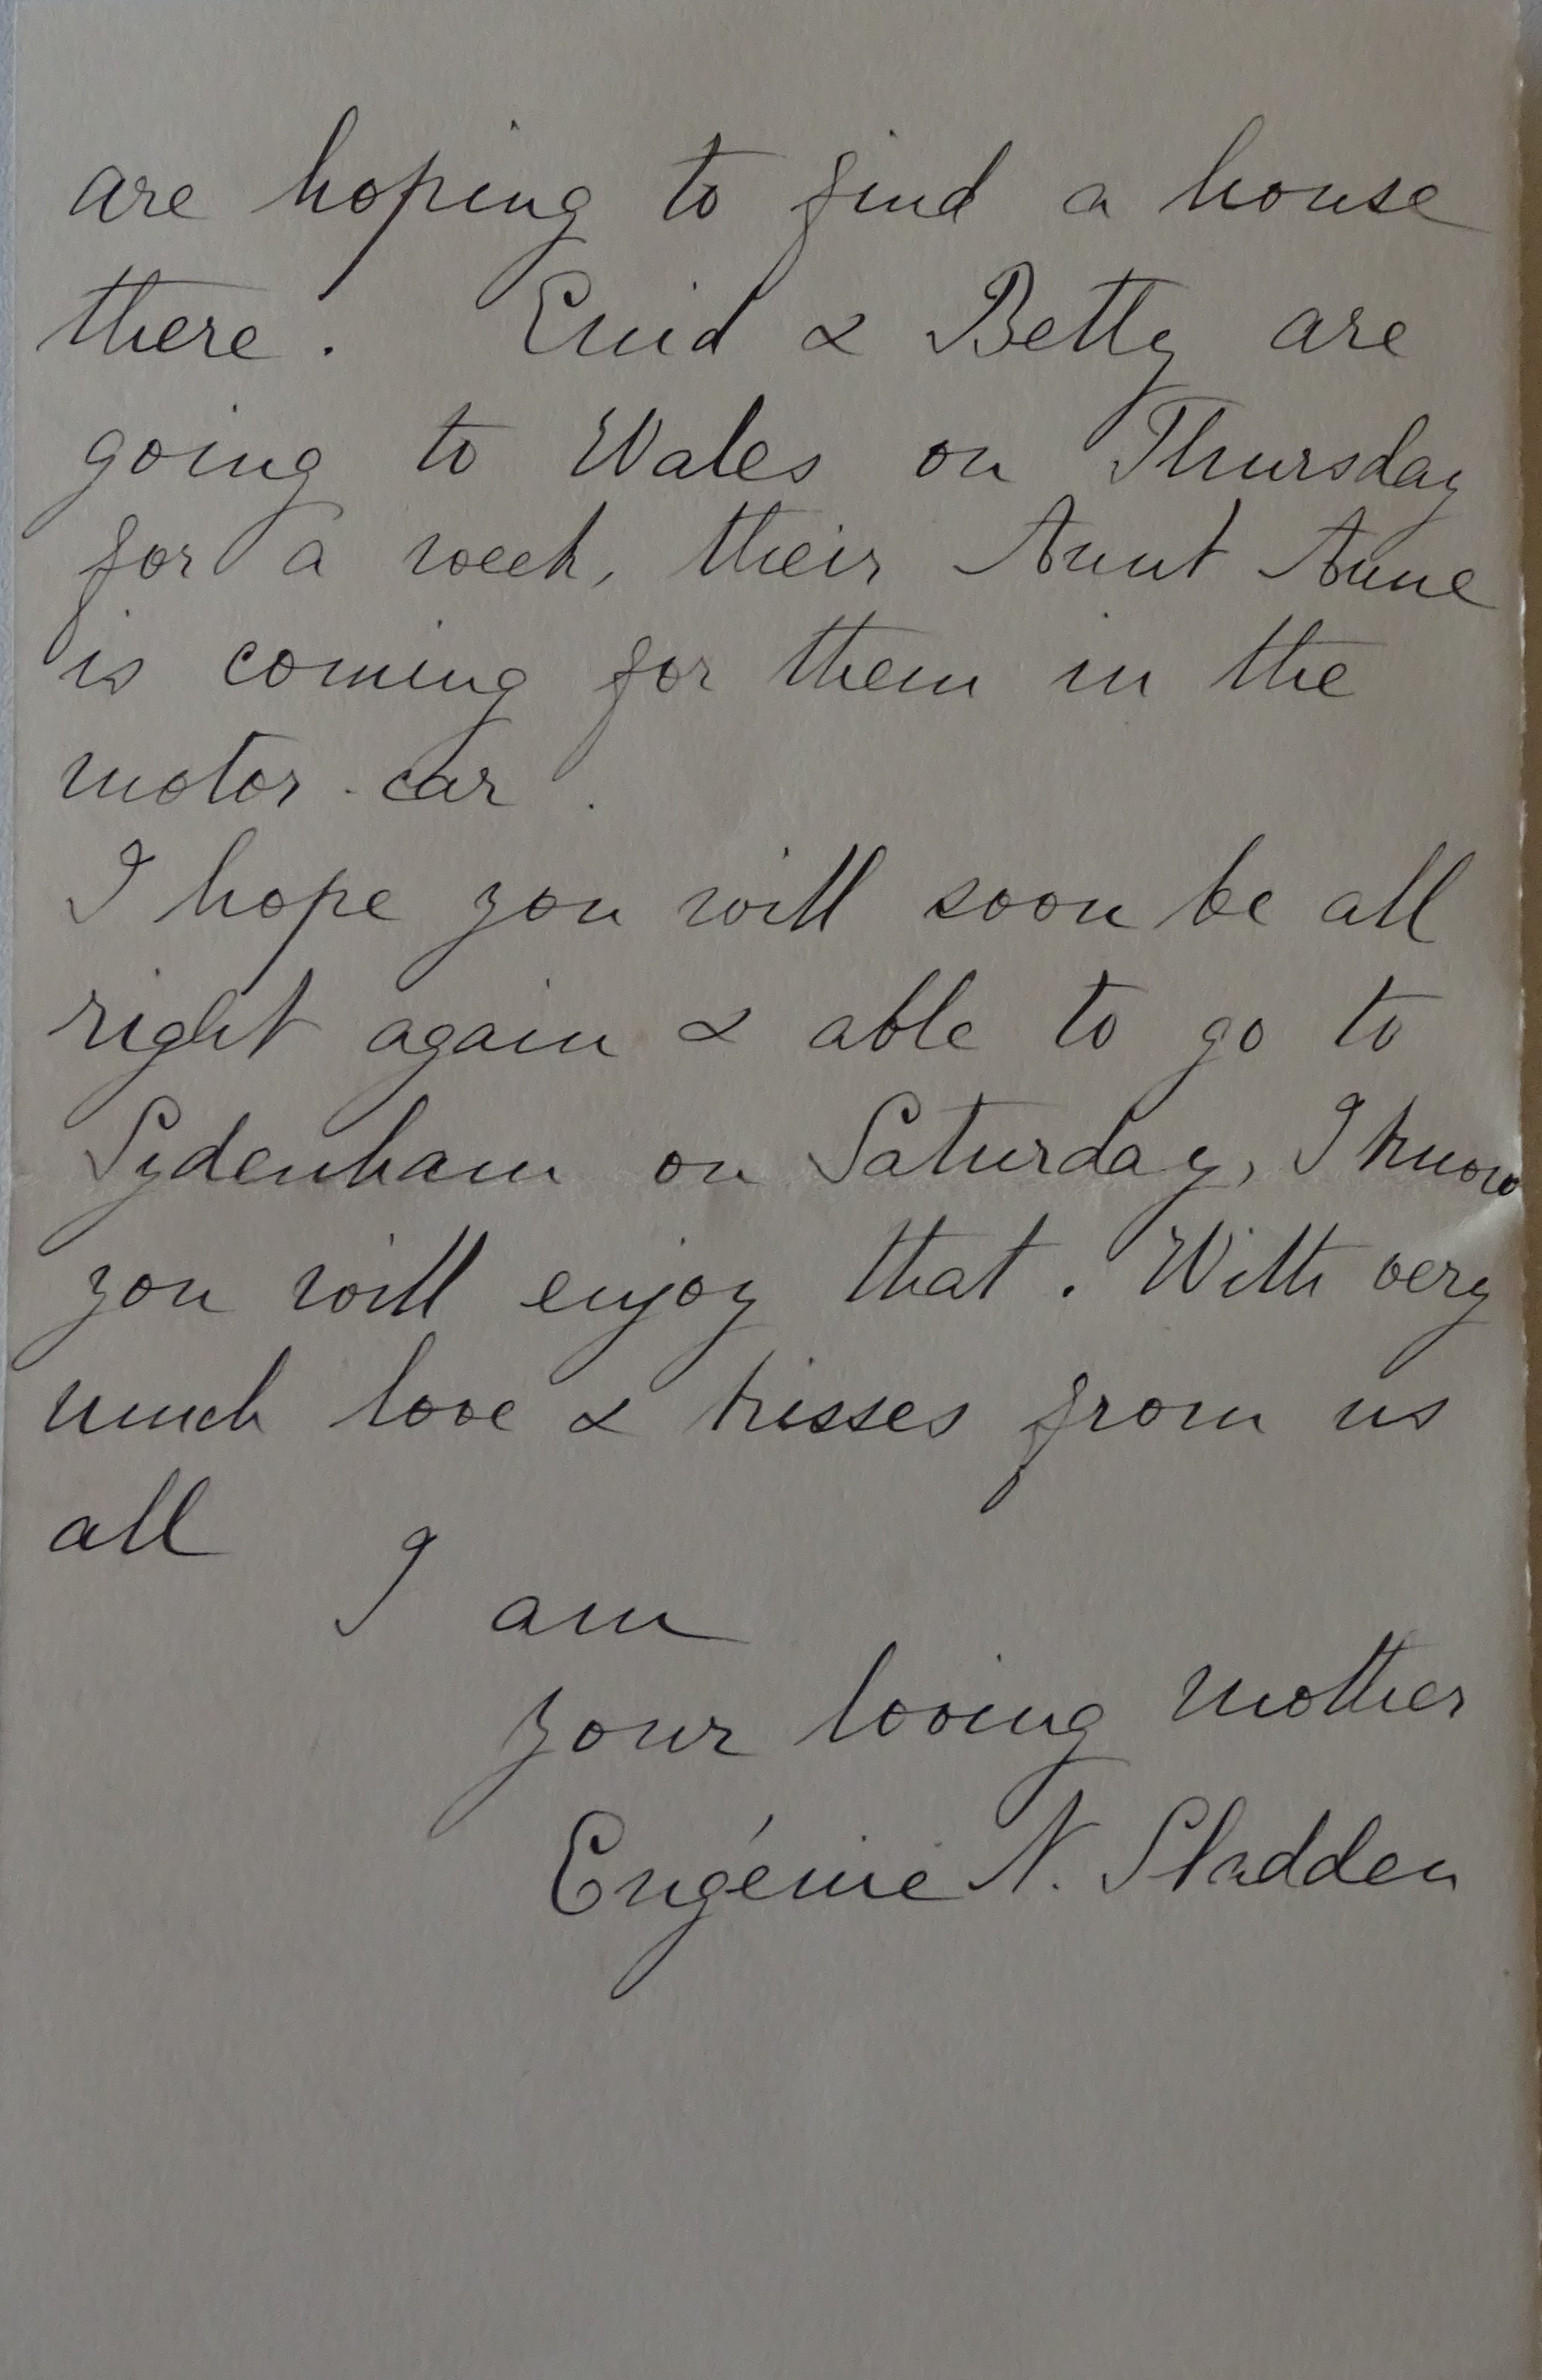 are hoping to find a house
there. Enid & Betty are
going to Wales on Thursday
for a week, their Aunt Anne
is coming for them in the
motor-car.
I hope you will soon be all
right again & able to go to
Sydenham on Saturday, I know
you will enjoy that. With very
much love & kisses from us
all
I am
your loving mother
Eugénie N. Sladden